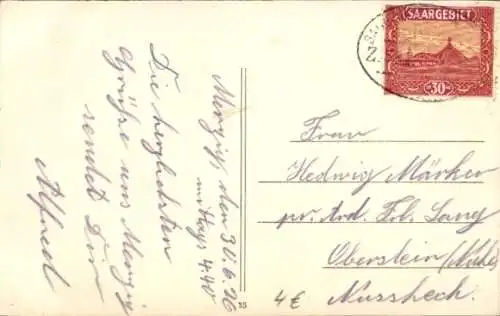 SAARGEBIET
30
Merzig, den 30.6.26
mittags 4.40
Die herzlichsten
Grüße aus Merzig
sendet Dir
Alfred
Frau
Hedwig Märker
pr. Ad. Frl. Lang
Oberstein (Nahe)
Nussheck.
35
4€